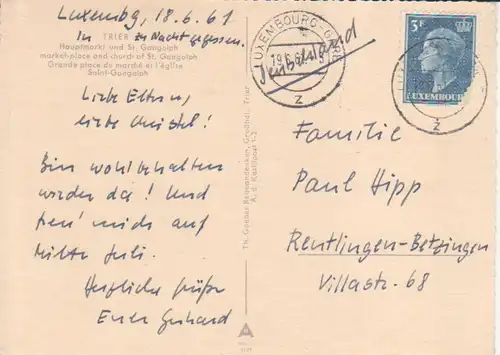 Luxembg, 18.6.61
In TRIER zu Nacht gegessen.
Hauptmarkt und St. Gangolph
market-place and church of St. Gangolph
Grande place du marché et l'église
Saint-Gangolph
Liebe Eltern,
liebe Christel!
Bin wohlbehalten
wieder da! Und
freu' mich auf
Mitte Juli.
Herzliche Grüße
Euer Gerhard
A. d. Kastilport 1-2
LUXEMBOURG
19.6.61
Z
Deutschland
5F
LUXEMBOURG
Z
Familie
Paul Hipp
Reutlingen-Betzingen
Villastr. 68
A